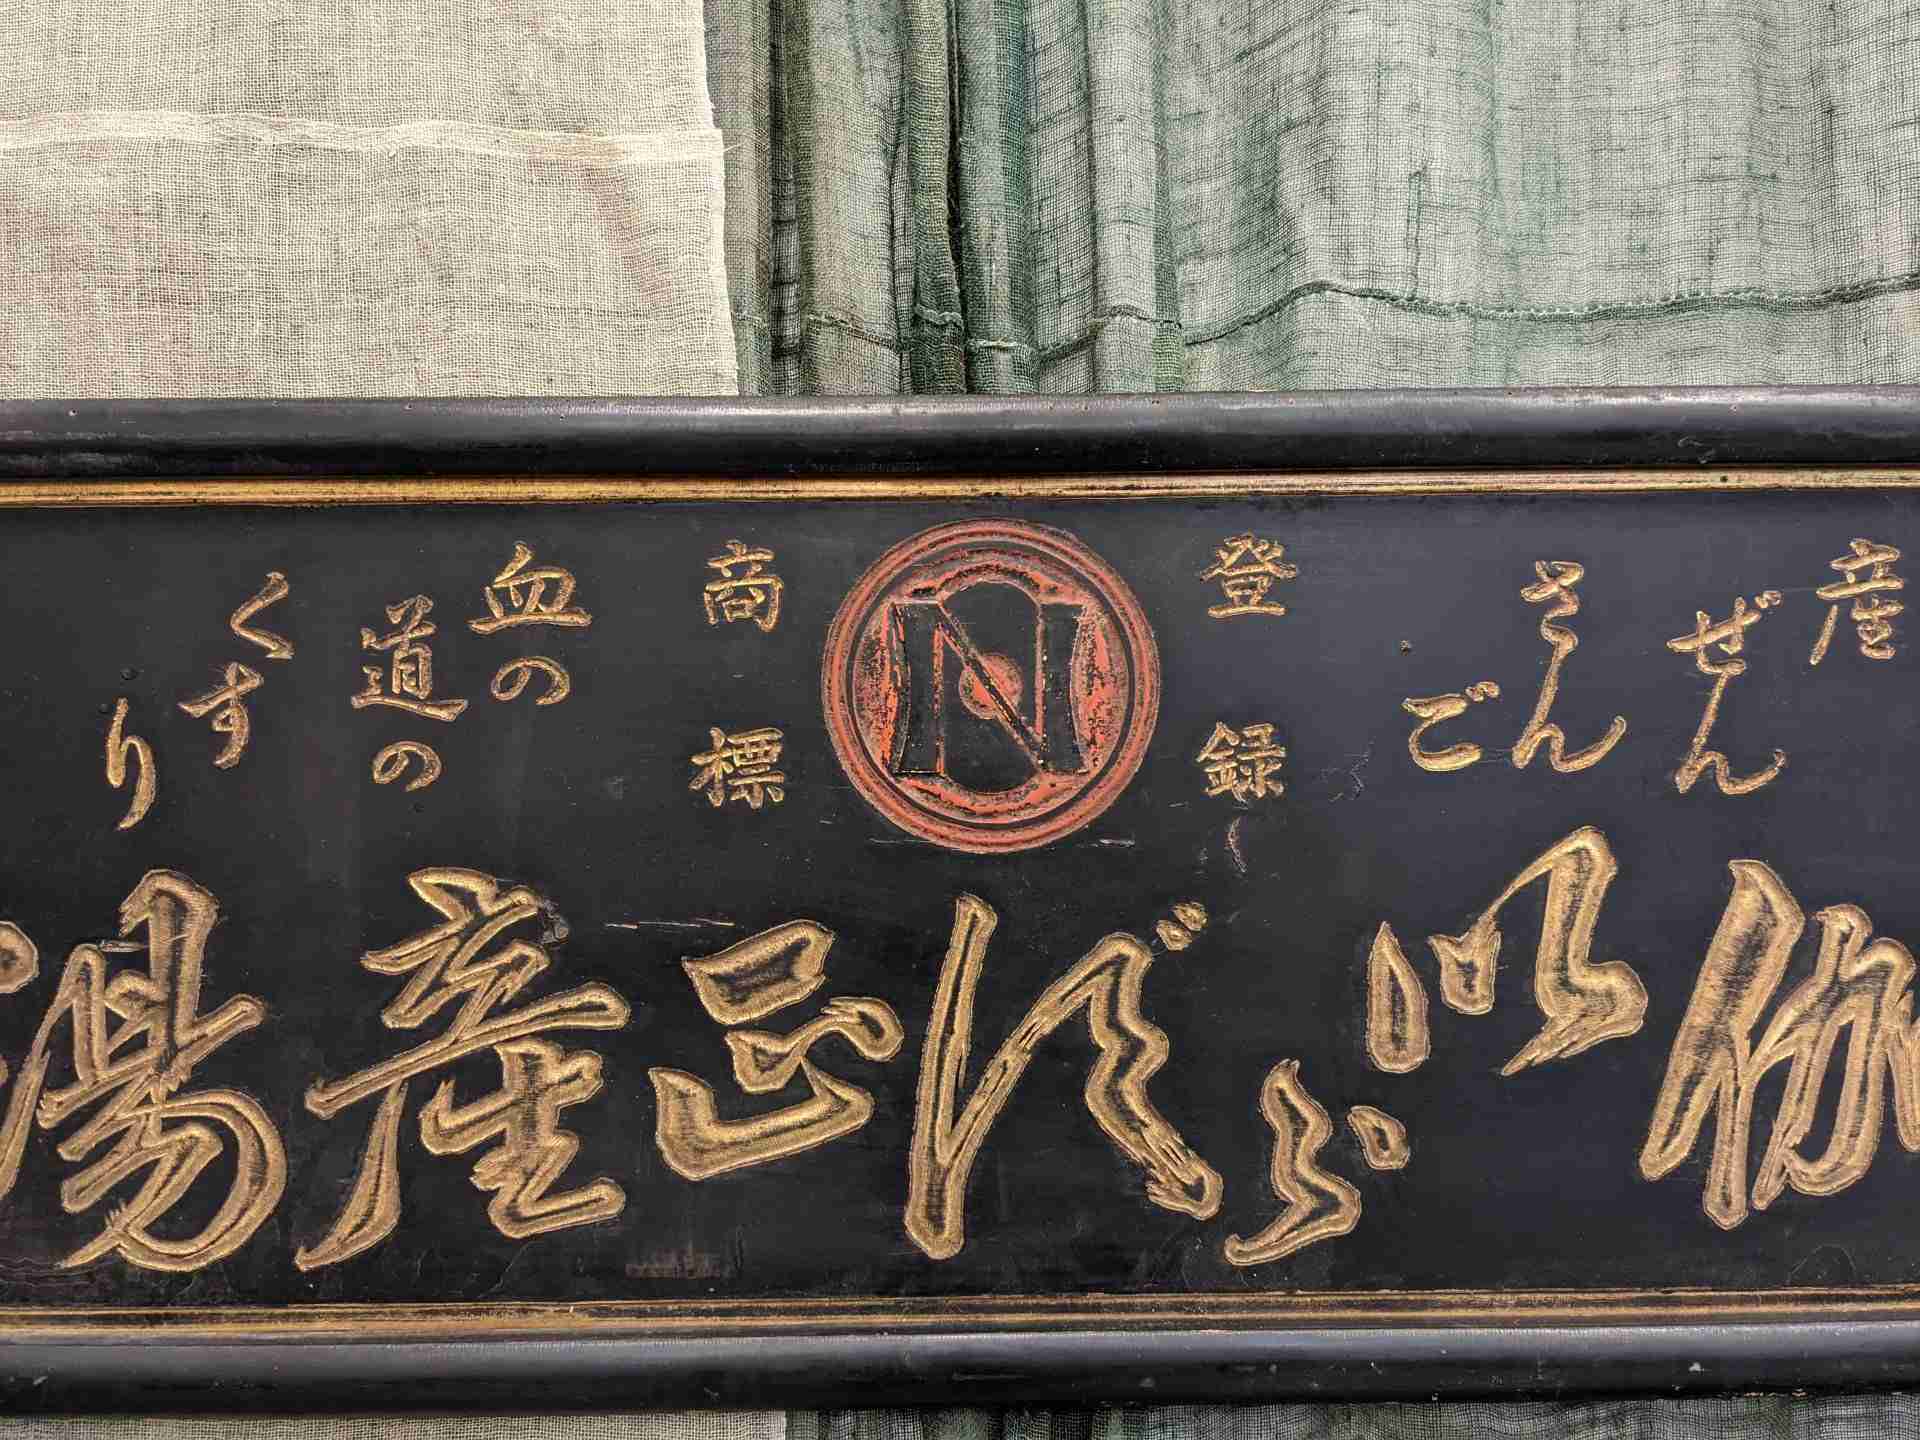 産ぜん
さんご
登録
N
商標
血の
道の
くすり
正産湯